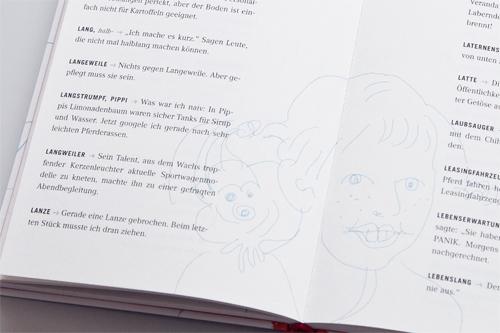 perfekt, aber der Boden ist ein-
fach nicht für Kartoffeln geeignet.
LANG, halb- → „Ich mache es kurz.“ Sagen Leute,
die nicht mal halblang machen können.
LANGEWEILE → Nichts gegen Langeweile. Aber ge-
pflegt muss sie sein.
LANGSTRUMPF, PIPPI → Was war ich naiv: In Pip-
pis Limonadenbaum waren sicher Tanks für Sirup
und Wasser. Jetzt googele ich gerade nach sehr
leichten Pferderassen.
LANGWEILER → Sein Talent, aus dem Wachs trop-
fender Kerzenleuchter aktuelle Sportwagenmo-
delle zu kneten, machte ihn zu einer gefragten
Abendbegleitung.
LANZE → Gerade eine Lanze gebrochen. Beim letz-
ten Stück musste ich dran ziehen.
Veranda
brennt!
von unten
LATTE →
Öffentlichke
ter Getöse
LAUBSAUGER
mit dem
den.
LEASINGFAHRZEU
Pferd fahren
Leasingfahrzeug
LEBENSERWARTUN
sagte: „Sie habe
PANIK. Morgens
nachgerechnet.
LEBENSLANG → De
nie aus.“